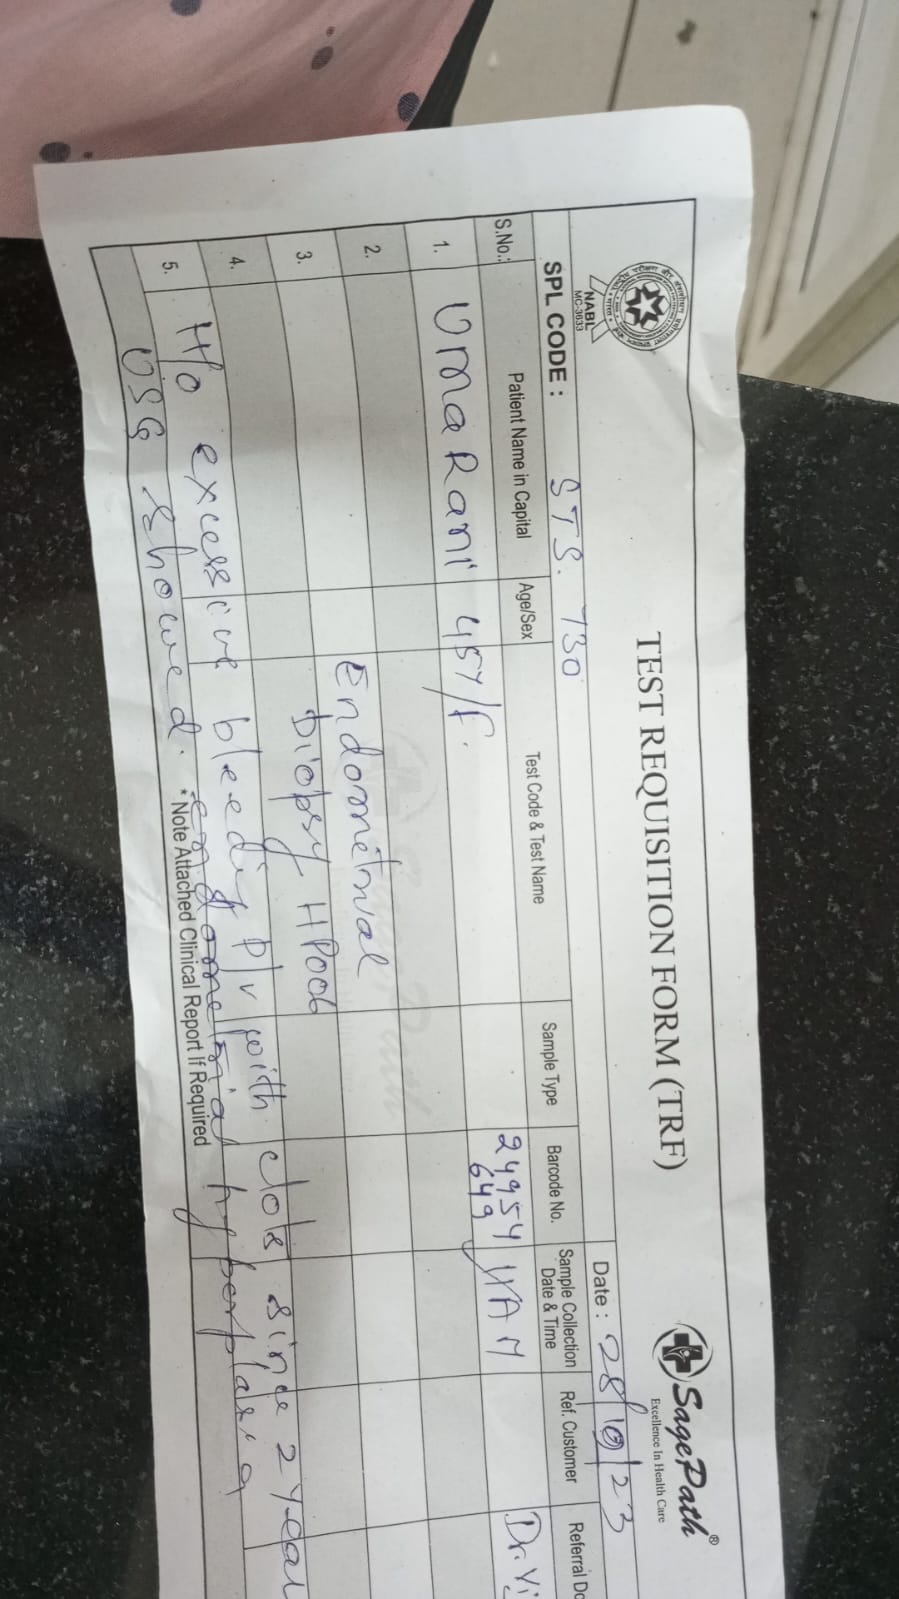 TEST REQUISITION FORM (TRF)
SagePath®
Excellence In Health Care
NABL
MC-3633
Date : 28/10/23
SPL CODE : STS. 730
S.No.: Patient Name in Capital Age/Sex Test Code & Test Name Sample Type Barcode No. Sample Collection Date & Time Ref. Customer Referral Do
1. Uma Rani 45Y/F. 24954 649 11AM Dr. Vi
2. Endometrial
3. Biopsy HPoob
4. H/o excessive bleedig P/v with clots since 2 year
5. USG showed. endometrial hyperplasia
* Note Attached Clinical Report If Required